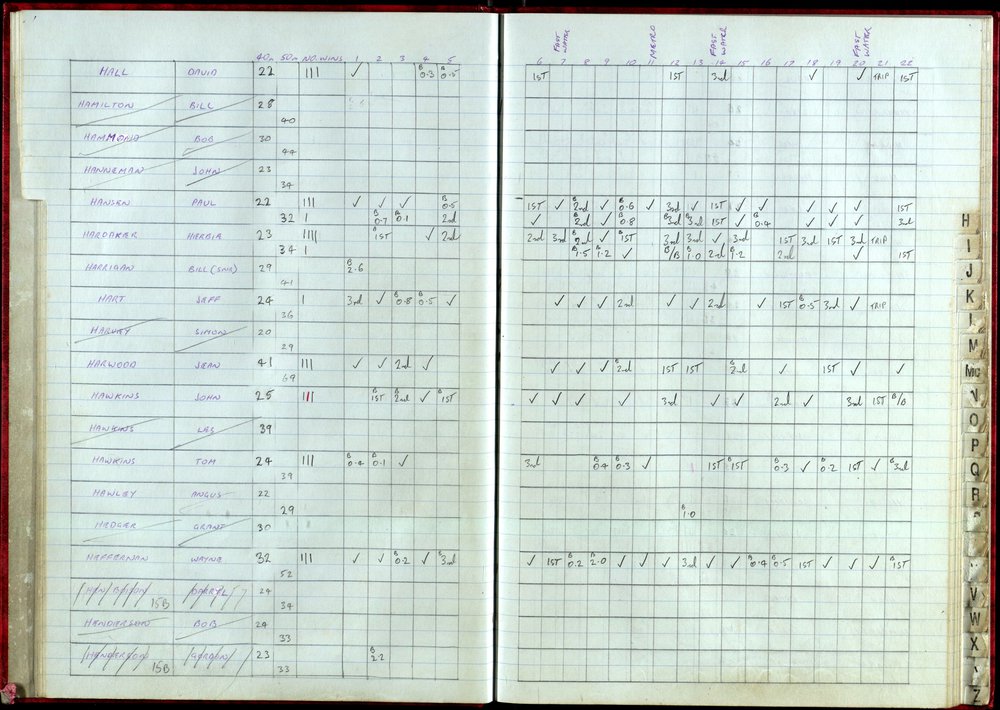 FAST WATER METRO FAST WATER FAST WATER
40m 50m NO. WINS 1 2 3 4 5 6 7 8 9 10 11 12 13 14 15 16 17 18 19 20 21 22
HALL DAVID 22 III ✓ B 0.3 B 0.5 1ST 1ST 3rd ✓ ✓ TRIP 1ST
HAMILTON BILL 28
40
HAMMOND BOB 30
44
HANNEMAN JOHN 23
34
HANSEN PAUL 22 III ✓ ✓ ✓ B 0.5 1ST ✓ B 2nd ✓ B 0.6 ✓ 3rd ✓ 1ST ✓ ✓ ✓ ✓ ✓ 1ST
32 I B 0.7 B 0.1 2nd ✓ 2nd ✓ B 0.8 B 3rd B 3rd 1ST ✓ B 0.4 ✓ ✓ ✓ 3rd
HARDAKER HERBIE 23 IIII B 1ST ✓ 2nd 2nd 3rd B 2nd ✓ B 1ST 3rd 3rd ✓ 3rd 1ST 3rd 1ST 3rd TRIP
34 I B 1.5 B 1.2 ✓ B/B B 1.0 2nd B 1.2 2nd ✓ 1ST
HARRIGAN BILL (SNR) 29 B 2.6
41
HART JEFF 24 I 3rd ✓ B 0.8 B 0.5 ✓ ✓ ✓ ✓ 2nd ✓ ✓ 2nd ✓ 1ST B 0.5 3rd ✓ TRIP
36
HARVEY SIMON 20
29
HARWOOD JEAN 41 III ✓ ✓ 2nd ✓ ✓ ✓ ✓ B 2nd 1ST 1ST B 2nd ✓ 1ST ✓ ✓
69
HAWKINS JOHN 25 III B 1ST B 2nd ✓ B 1ST ✓ ✓ ✓ ✓ 3rd ✓ ✓ 2nd ✓ 3rd 1ST B/B
HAWKINS LES 39
HAWKINS TOM 24 III B 0.4 B 0.1 ✓ 3rd B 0.4 B 0.3 ✓ 1ST B 1ST B 0.3 ✓ B 0.2 1ST ✓ B 3rd
39
HAWLEY ANGUS 22
29 B 1.0
HEDGER GRANT 30
HEFFERNAN WAYNE 32 III ✓ ✓ B 0.2 ✓ B 3rd ✓ 1ST B 0.2 B 2.0 ✓ ✓ ✓ 3rd ✓ ✓ B 0.4 B 0.5 1ST ✓ ✓ ✓ B 1ST
52
15B DARRYL 24
34
HENDERSON BOB 24
33
HENDERSON 15B GORDON 23 B 2.2
33
H
I
J
K
L
M
Mc
N
O
P
Q
R
V
W
X
Z